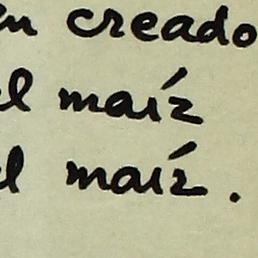 en creado
el maíz
el maíz.